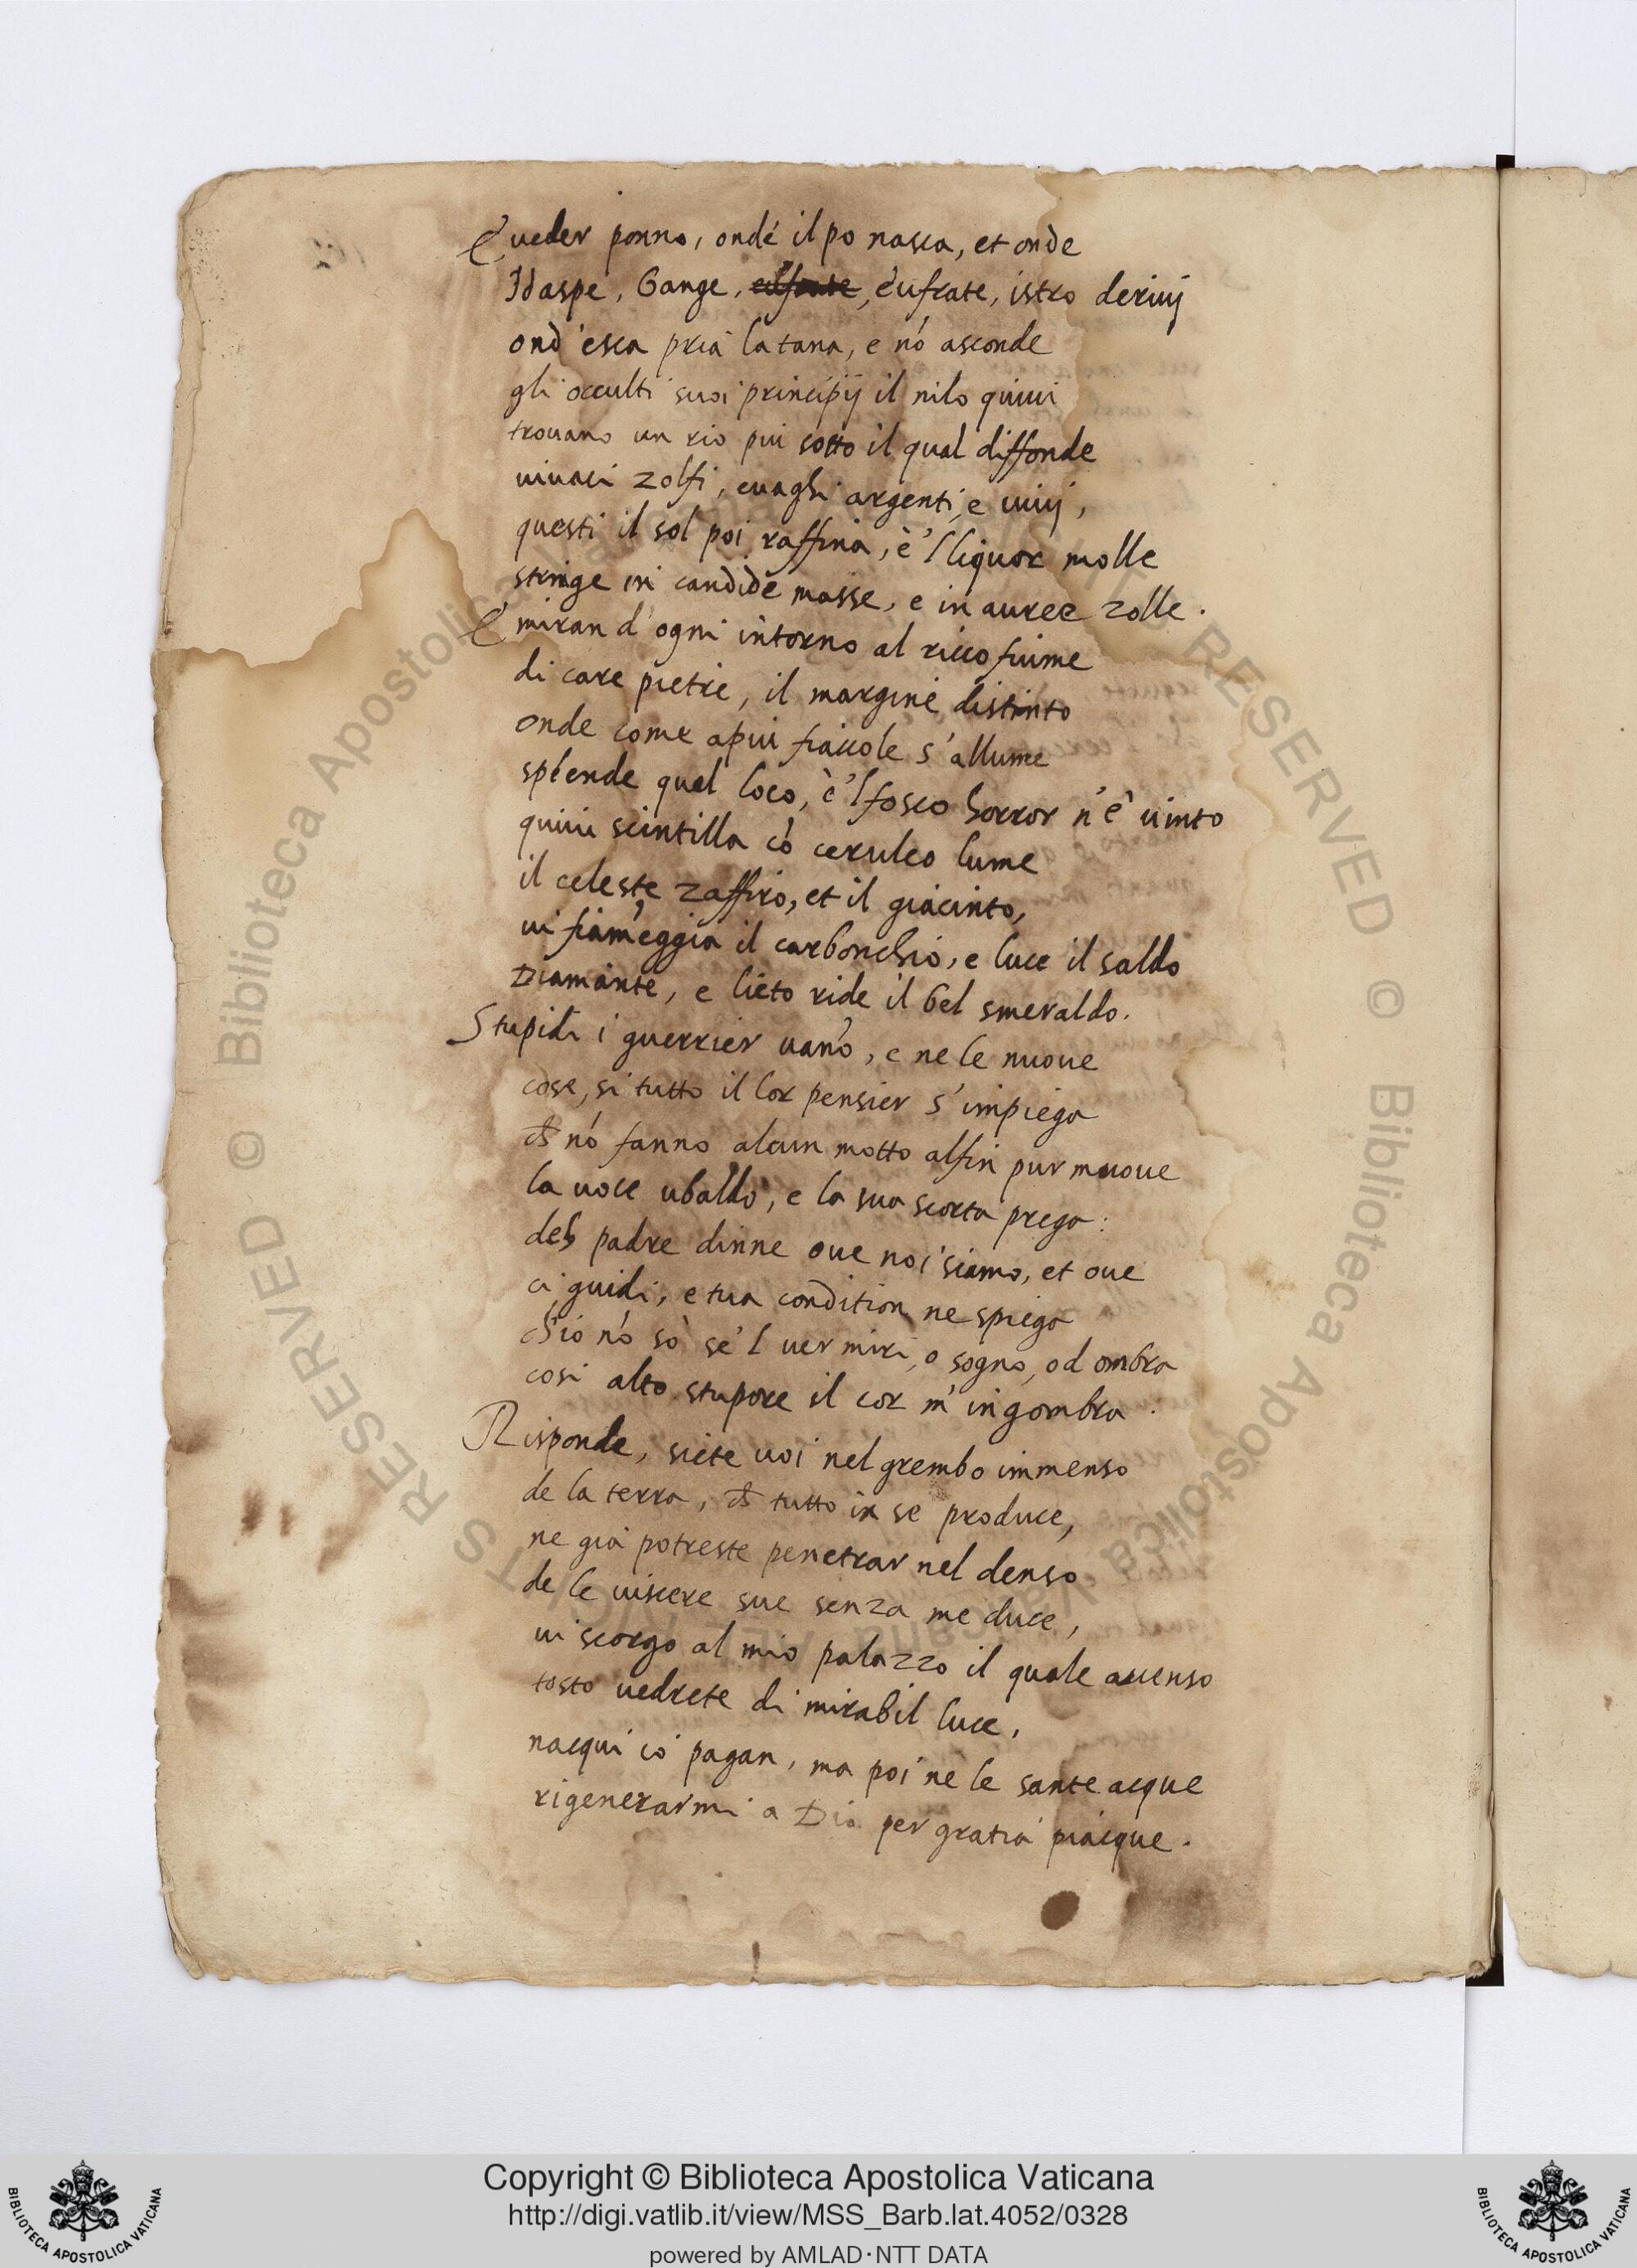 E ueder ponno, onde il po nasca, et onde
Idaspe, Gange, eufrate, eufrate, istro deriuj
ond'esca pria la tana, e nó asconde
gli occulti suoi principij il nilo quiui
trouano un rio piu sotto il qual diffonde
uiuaci zolfi, euaghi argenti, e uiuj,
questi il sol poi raffina, e'l liquor molle
stringe in candide masse, e in auree zolle.
E miran d'ogni intorno al ricco fiume
di care pietre, il margine distinto
onde come a piu fiaccole s'allume
splende quel loco, e'l fosco horror n'é uinto
quiui scintilla có ceruleo lume
il celeste zaffiro, et il giacinto,
ui fiameggia il carbonchio, e luce il saldo
Diamante, e lieto ride il bel smeraldo.
Stupidi i guerrier uano, e ne le nuoue
cose, si tutto il lor pensier s'impiega
ch nó fanno alcun motto alfin pur muoue
la uoce ubaldo, e la sua scorta prega:
deh padre dinne oue noi siamo, et oue
ci guidi, e tua condition ne spiega
ch'io nó só se'l uer miri, o sogno, od ombra
cosi alto stupore il cor m'ingombra.
Risponde, siete uoi nel grembo immenso
de la terra, ch tutto in se produce,
ne gia potreste penetrar nel denso
de le uiscere sue senza me duce,
ui scorgo al mio palazzo il quale accenso
tosto uedrete di mirabil luce,
nacqui io pagan, ma poi ne le sante acque
rigenerarmi a Dio per gratia piacque.
Copyright © Biblioteca Apostolica Vaticana
http://digi.vatlib.it/view/MSS_Barb.lat.4052/0328
powered by AMLAD·NTT DATA
BIBLIOTECA APOSTOLICA VATICANA
BIBLIOTECA APOSTOLICA VATICANA